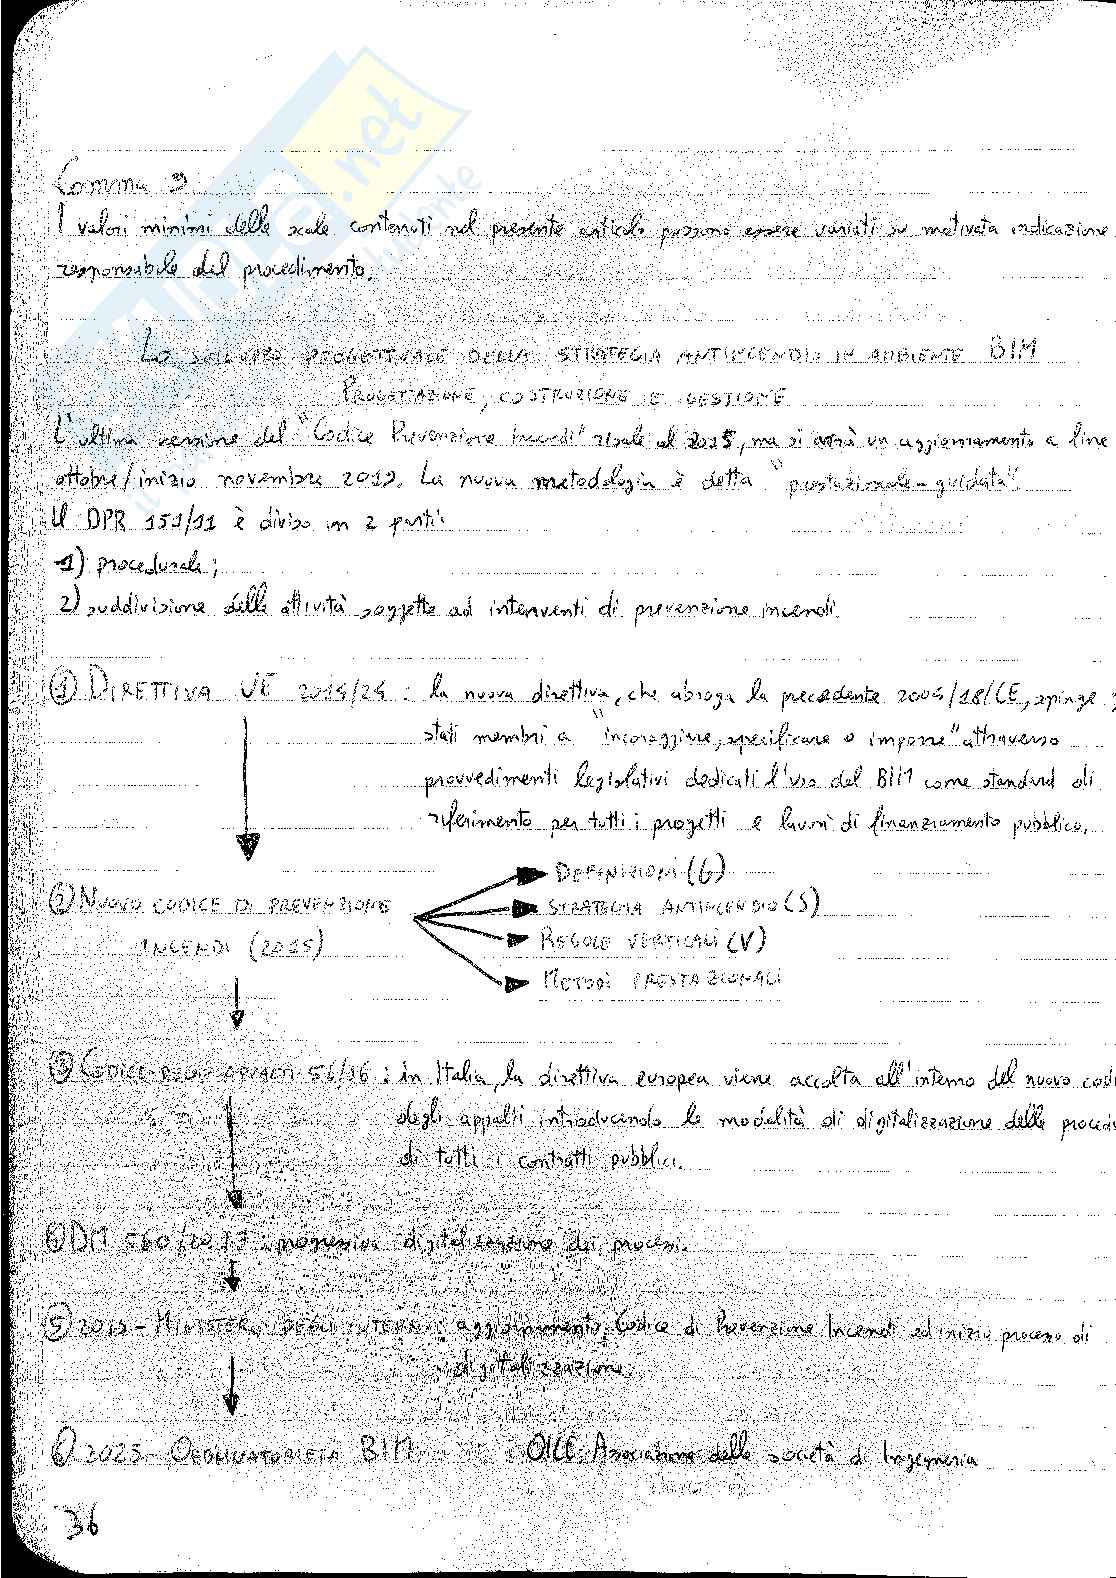 Comma 9
I valori minimi delle scale contenuti nel presente articolo possono essere variati su motivata indicazione
responsabile del procedimento.
LO SVILUPPO PROGETTUALE DELLA STRATEGIA ANTINCENDIO IN AMBIENTE BIM
PROGETTAZIONE, COSTRUZIONE E GESTIONE
L'ultima versione del "Codice Prevenzione Incendi" risale al 2015, ma si avrà un aggiornamento a fine
ottobre/inizio novembre 2019. La nuova metodologia è detta "prestazionale-guidata".
Il DPR 151/11 è diviso in 2 parti:
1) procedurale;
2) suddivisione delle attività soggette ad interventi di prevenzione incendi.
① DIRETTIVA UE 2014/24 : la nuova direttiva, che abroga la precedente 2004/18/CE, spinge
stati membri a "incoraggiare, specificare o imporre" attraverso
provvedimenti legislativi dedicati l'uso del BIM come standard di
riferimento per tutti i progetti e lavori di finanziamento pubblico.
② NUOVO CODICE DI PREVENZIONE
INCENDI (2015)
DEFINIZIONI (G)
STRATEGIA ANTINCENDIO (S)
REGOLE VERTICALI (V)
METODI PRESTAZIONALI
③ CODICE DEGLI APPALTI 56/16 : in Italia, la direttiva europea viene accolta all'interno del nuovo codi
degli appalti introducendo le modalità di digitalizzazione delle procedu
di tutti i contratti pubblici.
④ DM 560/2017 : progressiva digitalizzazione dei processi.
⑤ 2019 - MINISTERO DEGLI INTERNI : aggiornamento Codice di Prevenzione Incendi ed inizio processo di
digitalizzazione.
2025 - OBBLIGATORIETÀ BIM OICE: Associazione delle società di Ingegneria
36
.net